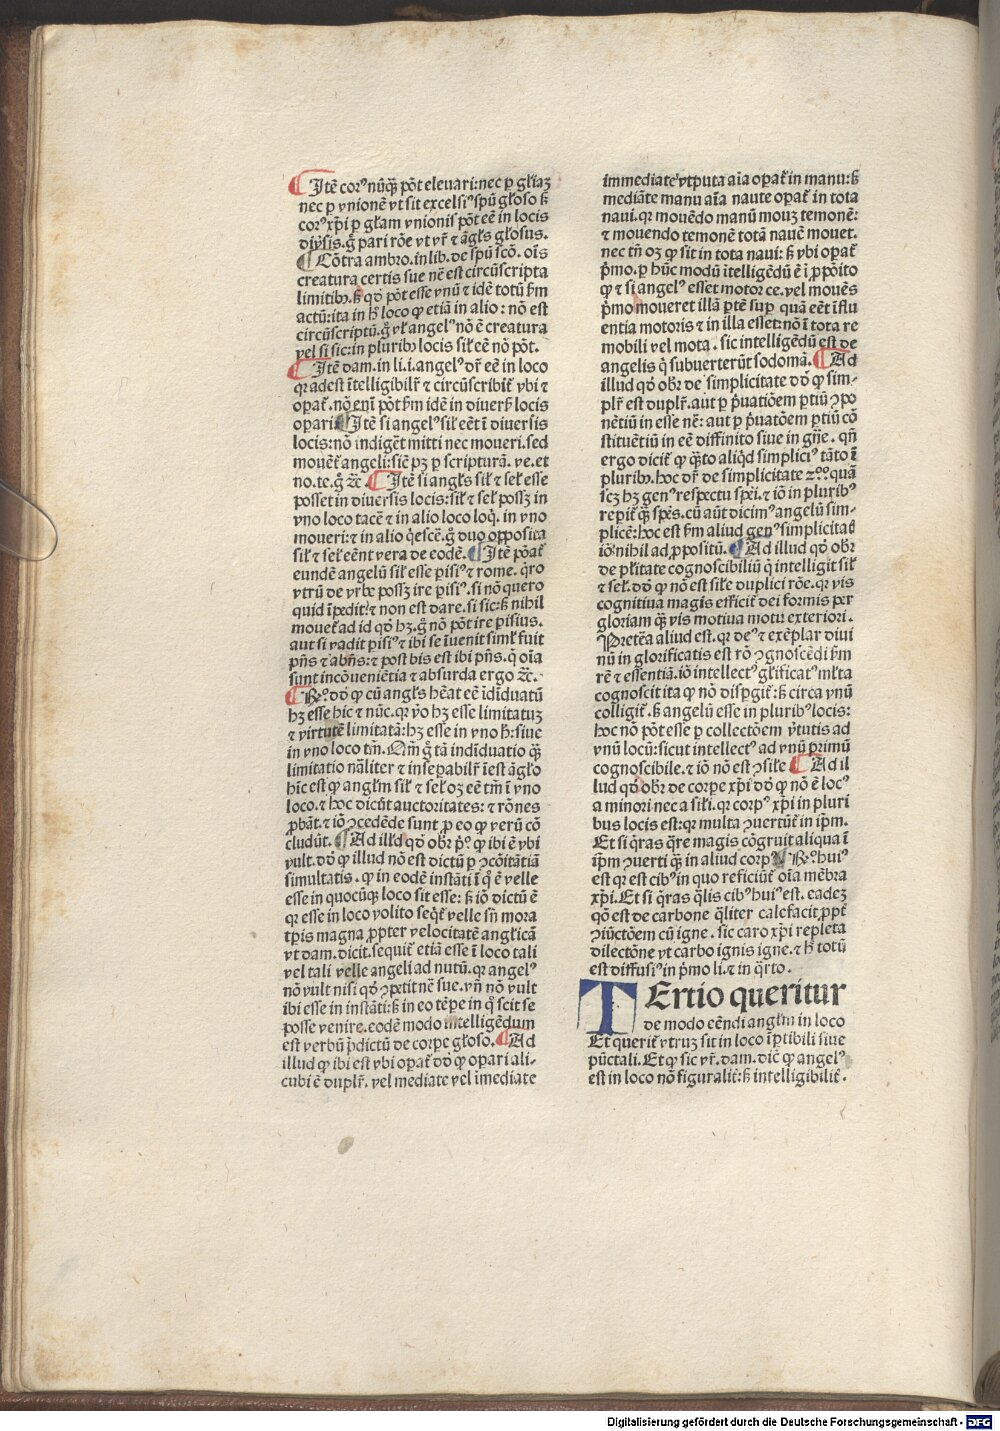 ¶ Itē corꝰ nūqͣꝫ pōt eleuari: nec ꝑ gl̄iaꝫ
nec ꝑ vnionē vt sit excelsiꝰ spū gl̄oso sꝫ
corꝰ xp̄i ꝑ gl̄am vnionis pōt eē in locis
diūsis. gͦ pari rōe vt vr̄ ⁊ āgl̄s gl̄osus.
¶ Cōtra ambro. in lib. de spū scō. oīs
creatura certis sue nē est circūscripta
limitibꝫ. sꝫ qđ pōt esse vnū ⁊ idē totū ẜm
actū: ita in hͦ loco ꝙ etiā in alio: nō est
circūscriptū. gͦ vl̄ angelꝰ nō ē creatura
vel si sic: in pluribꝫ locis sil̄ eē nō pōt.
¶ Itē dam. in li. i. angelꝰ dr̄ eē in loco
qꝛ adest ītelligibilr̄ ⁊ circūscribit̄ vbi ⁊
opat̄. nō enī pōt ẜm idē in diuersꝭ locis
opari ¶ Itē si angelꝰ sil̄ eēt ī diuersis
locis: nō indigēt mitti nec moueri. sed
mouēt̄ angeli: sic̄ pꝫ ꝑ scripturā. ve. et
no. te. gͦ ⁊c̄. ¶ Itē si angl̄s sil̄ ⁊ sel̄ esse
posset in diuersis locis: sil̄ ⁊ sel̄ possꝫ in
vno loco tacē ⁊ in alio loco loq̄. in vno
moueri: ⁊ in alio q̄escē. gͦ duo opposita
sil̄ ⁊ sel̄ eēnt vera de eodē. ¶ Itē pōat̄
eundē angelū sil̄ esse ꝑisiꝰ ⁊ rome. q̄ro
vtrū de vrbe possꝫ ire ꝑisiꝰ. si nō quero
quid īpedit ⁊ non est dare. si sic: sꝫ nihil
mouet̄ ad id qđ hꝫ. gͦ nō pōt ire ꝑisius.
aut si vadit ꝑisiꝰ ⁊ ibi se īuenit siml̄ fuit
pn̄s ⁊ abn̄s: ⁊ post bis est ibi pn̄s. q̄ oīa
sunt incōuenīetia ⁊ absurda ergo ⁊c̄.
¶ Rͦ. đo ꝙ cū angl̄s hēat eē īdīduatū
hꝫ esse hic ⁊ nūc. qꝛ vo hꝫ esse limitatuꝫ
⁊ virtutē limitatā: hꝫ esse in vno hͦ: siue
in vno loco tm̄. Nā gͦ tā indiduatio qͣꝫ
limitatio nāliter ⁊ inseꝑabilr̄ īest āgl̄o
hīc est ꝙ angl̄m sil̄ ⁊ sel̄ oꝫ eē tm̄ ī vno
loco. ⁊ hoc dicūt auctoritates: ⁊ rōnes
ꝓbāt. ⁊ iō ꝯcedēde sunt ꝓ eo ꝙ verū cō
cludūt. ¶ Ad ill̄d qđ obr̄ pͦ. ꝙ ibi ē vbi
vult. đo ꝙ illud nō est dictū ꝑ ꝯcōitātiā
simultatis. ꝙ in eodē instāti ī qͦ ē velle
esse in quocūqꝫ loco sit esse: sꝫ iō dictū ē
qꝛ esse in loco volito seqt̄ velle sn̄ mora
tp̄is magna ꝓpter velocitatē anglicā
vt dam. dicit. sequit̄ etiā esse ī loco tali
vel tali velle angeli ad nutū. qꝛ angelꝰ
nō vult nisi qđ ꝯpetit nē sue. vn̄ nō vult
ibi esse in instāti: sꝫ in eo tēꝑe in qͦ scit se
posse venire. eodē modo intelligēdum
est verbū p̄dictū de corꝑe gl̄oso. ¶ Ad
illud ꝙ ibi est vbi opat̄ đo ꝙ opari ali-
cubi ē duplr̄. vel mediate vel īmediate
immediate vtputa aīa opat̄ in manu: sꝫ
mediāte manu aīa naute opat̄ in tota
naui. qꝛ mouēdo manū mouꝫ temonē:
⁊ mouendo temonē totā nauē mouet.
nec tn̄ oꝫ ꝙ sit in tota naui: sꝫ vbi opat̄
pͦmo. ꝑ hūc modū ītelligēdū ē ī ꝓpōito
ꝙ ⁊ si angelꝰ esset motor ce. vel mouēs
pͦmo moueret illā ꝑtē suꝑ quā eēt īflu
entia motoris ⁊ in illa esset: nō ī tota re
mobili vel mota. sic intelligēdū est de
angelis q̄ subuerterūt sodomā. ¶ Ad
illud qđ obr̄ de simplicitate đo ꝙ sim-
plr̄ est duplr̄. aut ꝑ pͥuatiōem ꝑtiū ꝯpo
nētiū in esse nē: aut ꝑ pͥuatōem ꝑtiū cō
stituētiū in eē diffinito siue in gn̄e. qn̄
ergo dicit̄ ꝙ qͣto aliqd simpliciꝰ tāto ī
pluribꝫ. hoc dr̄ de simplicitate 2ͦꝰ. quā
scꝫ hꝫ genꝰ respectu spēi. ⁊ iō in pluribꝰ
reperit̄ qͣꝫ spēs. cū aūt dicimꝰ angelū sim-
plicē: hoc est ẜm aliud genꝰ simplicitaꝭ
iō nihil ad ꝓpositū. ¶ Ad illud qđ obr̄
de pl̄itate cognoscibiliū q̄ intelligit sil̄
⁊ sel̄. đo ꝙ nō est sil̄e duplici rōe. qꝛ vis
cognitiua magis efficit̄ dei formis per
gloriam qͣꝫ vis motiua motu exteriori.
Pretēa aliud est. qꝛ deꝰ ⁊ exēplar diui
nū in glorificatis est rō ꝯgnoscēdi ẜm
rē ⁊ essentiā. iō intellectꝰ gl̄ificatꝰ ml̄ta
cognoscit ita ꝙ nō disꝑgit̄: sꝫ circa vnū
colligit̄. sꝫ angelū esse in pluribꝰ locis:
hoc nō pōt esse ꝑ collectōem v̄tutis ad
vnū locū: sicut intellectꝰ ad vnū primū
cognoscibile. ⁊ iō nō est ꝯsil̄e ¶ Ad il
lud qđ obr̄ de corꝑe xp̄i đo ꝙ nō ē locꝰ
a minori nec a sil̄i. qꝛ corpꝰ xp̄i in pluri
bus locis est: qꝛ multa ꝯuertūt̄ in ip̄m.
Et si q̄ras qͣre magis cōgruit aliqua ī
ip̄m ꝯuerti qͣꝫ in aliud corpꝰ ¶ Rͦ. huiꝰ
est qꝛ est cibꝰ in quo reficiūt̄ oīa mēbra
xp̄i. Et si q̄ras qͣlis cibꝰ huiꝰ est. eadeꝫ
qō est de carbone qͣliter calefacit ꝓpt̄
ꝯiūctōem cū igne. sic caro xp̄i repleta
dilectōne vt carbo ignis igne. ⁊ hͦ totū
est diffusiꝰ in pͦmo li. ⁊ in qͣrto.
TErtio queritur
de modo eēndi angl̄m in loco
Et querit̄ vtruꝫ sit in loco īꝑtibili siue
pūctali. Et ꝙ sic vr̄. dam. dic̄ ꝙ angelꝰ
est in loco nō figuralit̄: sꝫ intelligibilit̄.
Digitalisierung gefördert durch die Deutsche Forschungsgemeinschaft - DFG